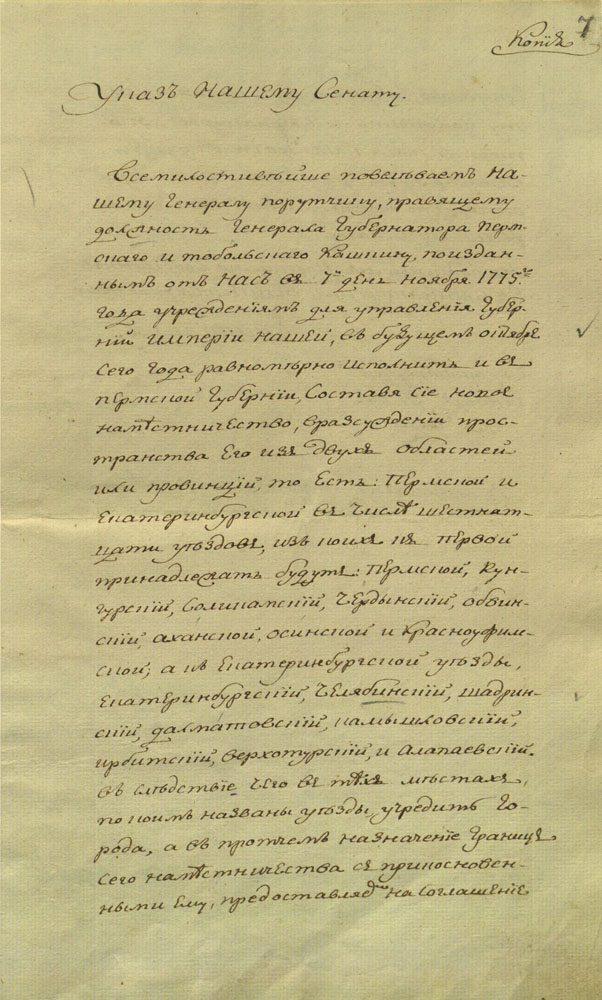 7
Копія
Указъ нашему Сенату.
Всемилостивѣйше повелѣваемъ на-
шему Генералу порутчику, правящему
должность Генерала Губернатора перм-
скаго и тобольскаго Кашкину, поиздан-
нымъ отъ насъ въ 7й день ноября 1775го
года учрежденіямъ для управленія Губер-
ній имперіи нашей, въ будущемъ октябре
сего года равномѣрно исполнить и въ
пермской Губерніи, Составя сіе новое
намѣстничество, вразсужденіи прос-
транства Его изъ двухъ областей
или провинцій, то Есть: Пермской и
Екатеринбургской въ числѣ шестнат-
цати уѣздовъ, изъ коихъ къ первой
принадлежать будутъ: Пермской, Кун-
гурскій, Соликамскій, Чердынскій, обвин-
скій, аханской, осинской и Красноуфим-
ской; а къ Екатеринбургской уѣзды,
Екатеринбургскій, Челябинскій, шадрин-
скій, далматовскій, камышловскій,
ирбитскій, верхотурскій, и Алапаевскій.
въ слѣдствіе чего въ тѣхъ мѣстахъ,
по коимъ названы уѣзды, учредить Го-
рода, а въ протчемъ назначеніе границъ
сего намѣстничества съ прикосновен-
ными ему, предоставляемъ на соглашеніе